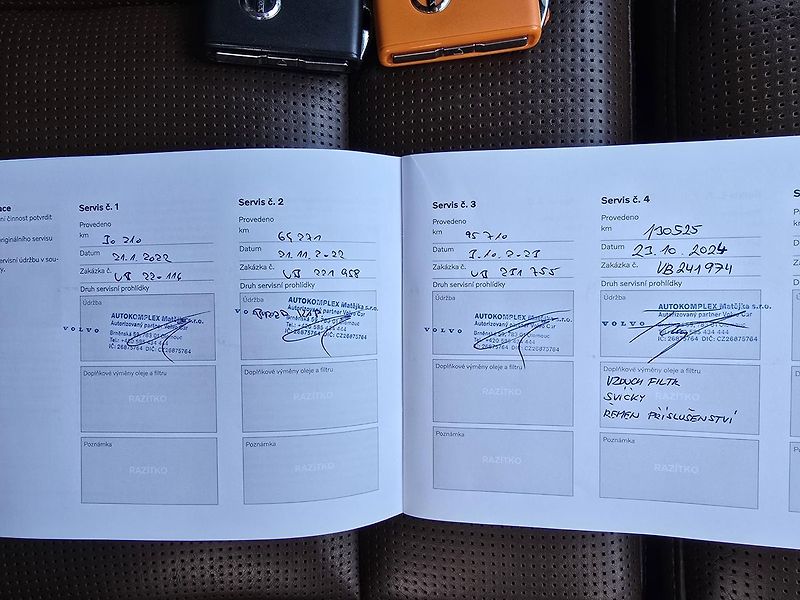 ace
ní činnost potvrdit
originálního servisu
ervisní údržbu v sou-
y.
Servis č. 1
Provedeno
km 30 210
Datum 21.1.2022
Zakázka č. VB 22-114
Druh servisní prohlídky
Údržba
VOLVO
AUTOKOMPLEX Matějka s.r.o.
Autorizovaný partner Volvo Car
Brněnská 59, 783 01 Olomouc
Tel.: +420 585 434 444
IČ: 26875764 DIČ: CZ26875764
Doplňkové výměny oleje a filtru
RAZÍTKO
Poznámka
RAZÍTKO
Servis č. 2
Provedeno
km 65 271
Datum 21.11.2022
Zakázka č. VB 221 958
Druh servisní prohlídky
Údržba
VOLVO
AUTOKOMPLEX Matějka s.r.o.
Autorizovaný partner Volvo Car
Brněnská 59, 783 01 Olomouc
Tel.: +420 585 434 444
IČ: 26875764 DIČ: CZ26875764
Doplňkové výměny oleje a filtru
RAZÍTKO
Poznámka
RAZÍTKO
Servis č. 3
Provedeno
km 95 710
Datum 2023
Zakázka č. VB 231 755
Druh servisní prohlídky
Údržba
VOLVO
AUTOKOMPLEX Matějka s.r.o.
Autorizovaný partner Volvo Car
Brněnská 59, 783 01 Olomouc
Tel.: +420 585 434 444
IČ: 26875764 DIČ: CZ26875764
Doplňkové výměny oleje a filtru
RAZÍTKO
Poznámka
RAZÍTKO
Servis č. 4
Provedeno
km 130525
Datum 23.10.2024
Zakázka č. VB241974
Druh servisní prohlídky
Údržba
VOLVO
AUTOKOMPLEX Matějka s.r.o.
Autorizovaný partner Volvo Car
IČ: 26875764 DIČ: CZ26875764
Doplňkové výměny oleje a filtru
VZDUCH FILTR
SVÍČKY
ŘEMEN PŘÍSLUŠENSTVÍ
Poznámka
RAZÍTKO